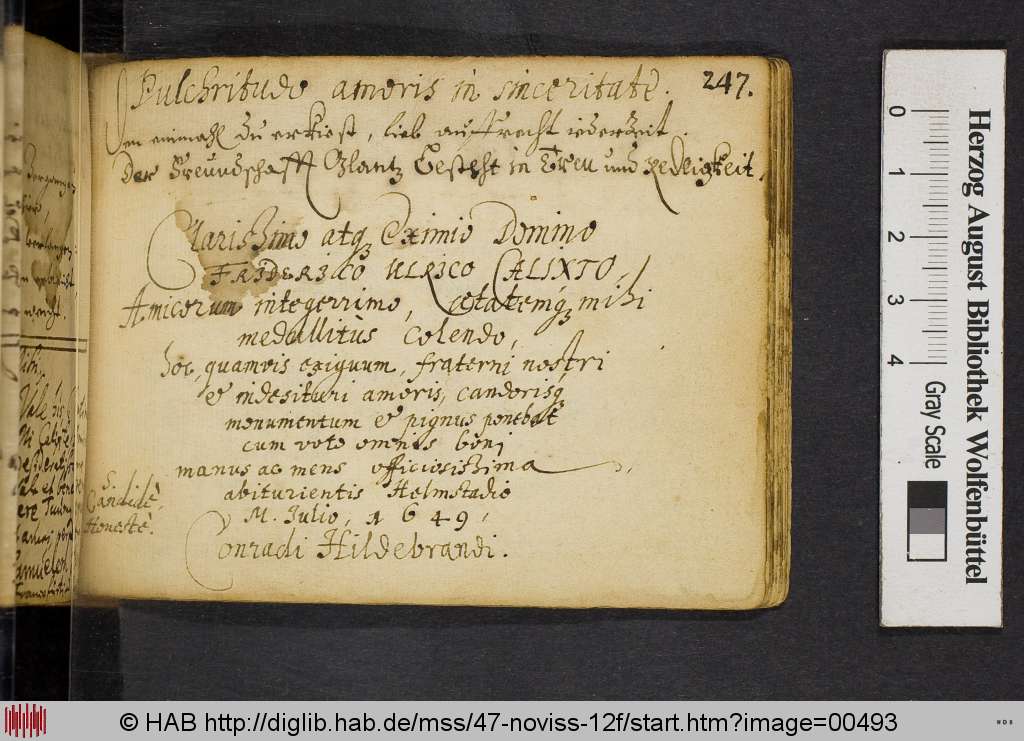 247.
Pulchritudo amoris in sinceritate.
Den einmahl du erkiest, lieb aufrecht iederzeit
Der Freundschafft Glantz besteht in Treu und Redligkeit.
Clarissimo atq; Eximio Domino
FRIDERICO ULRICO CALIXTO,
Amicorum integerrimo, ætatemq; mihi
medullitùs Colendo,
hoc, quamvis exiguum, fraterni nostri
& indesituri amoris, candorisq;
monumentum & pignus ponebat
cum voto omnis boni
manus ac mens officiosissima
abiturientis Helmstadio
M. Julio, 1649,
Conradi Hildebrandi.
S.
Candidè,
Honestè.
Herzog August Bibliothek Wolfenbüttel
0 1 2 3 4
Gray Scale
© HAB http://diglib.hab.de/mss/47-noviss-12f/start.htm?image=00493